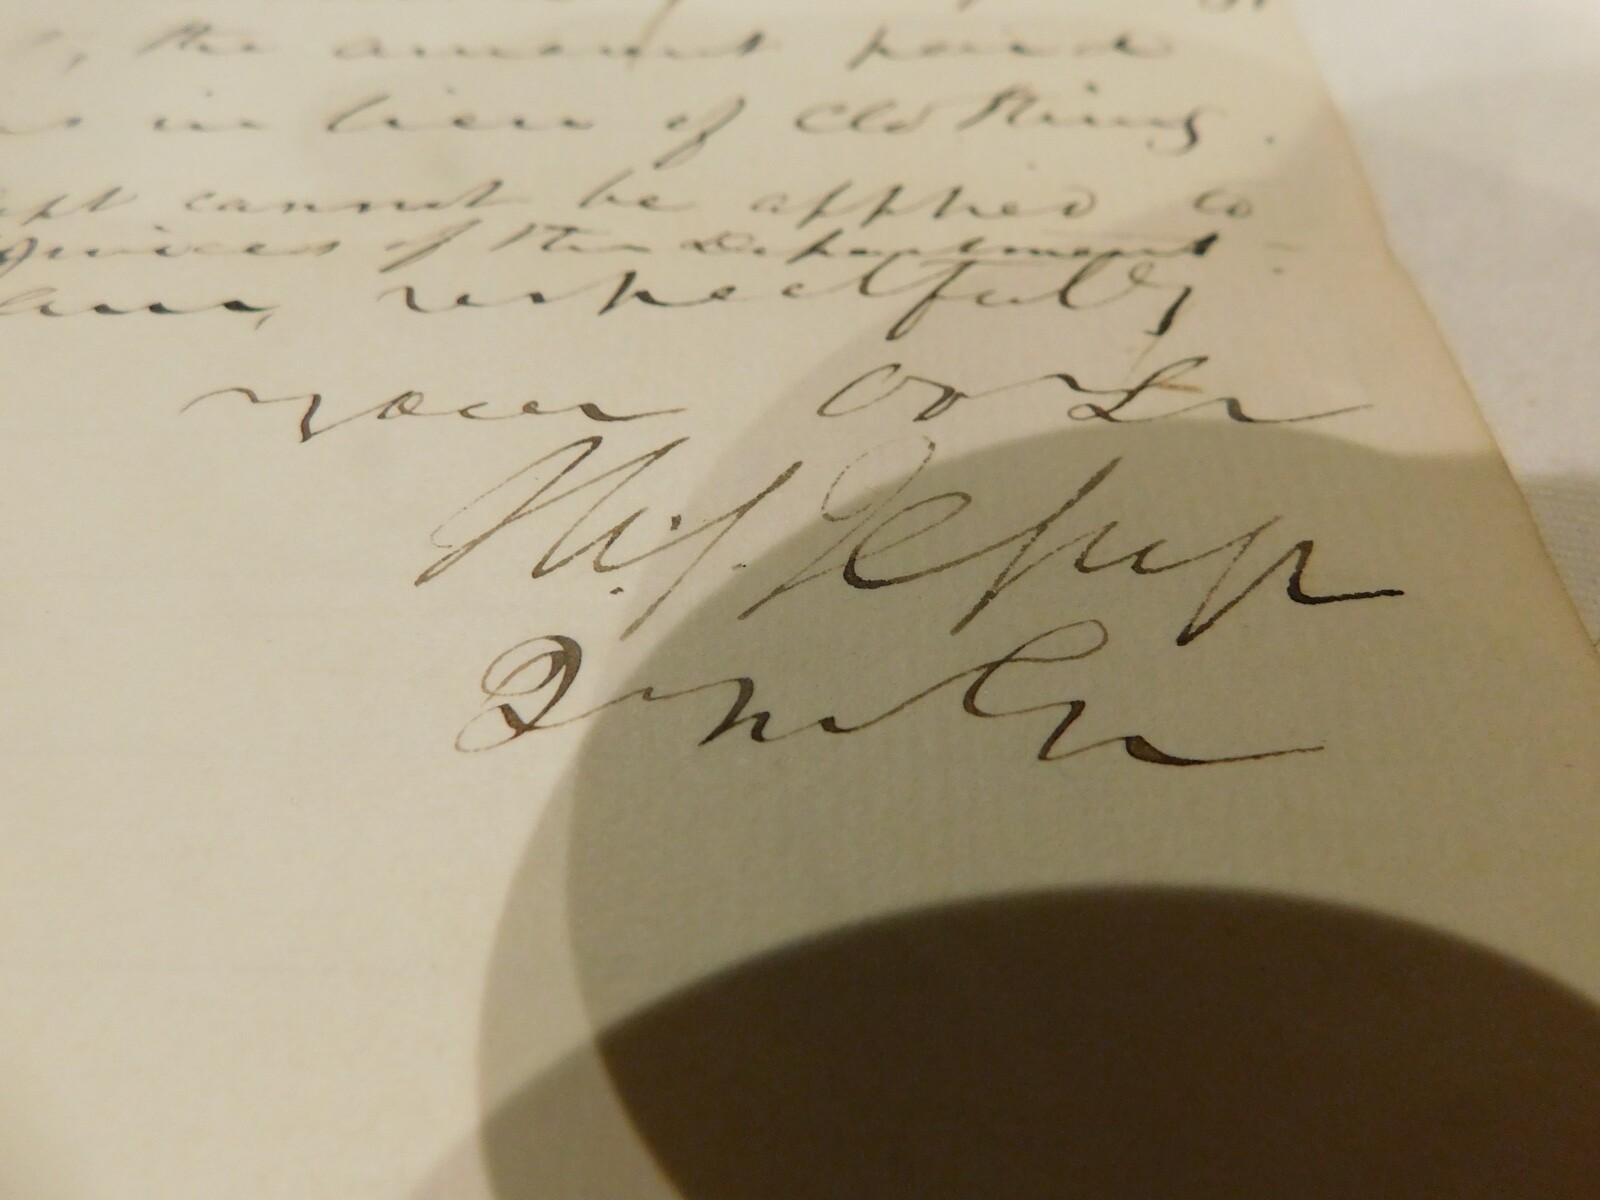 , the amount paid
in lieu of clothing.
cannot be applied to
of the Department.
respectfully
your ob Sr
Th. S. Jesup